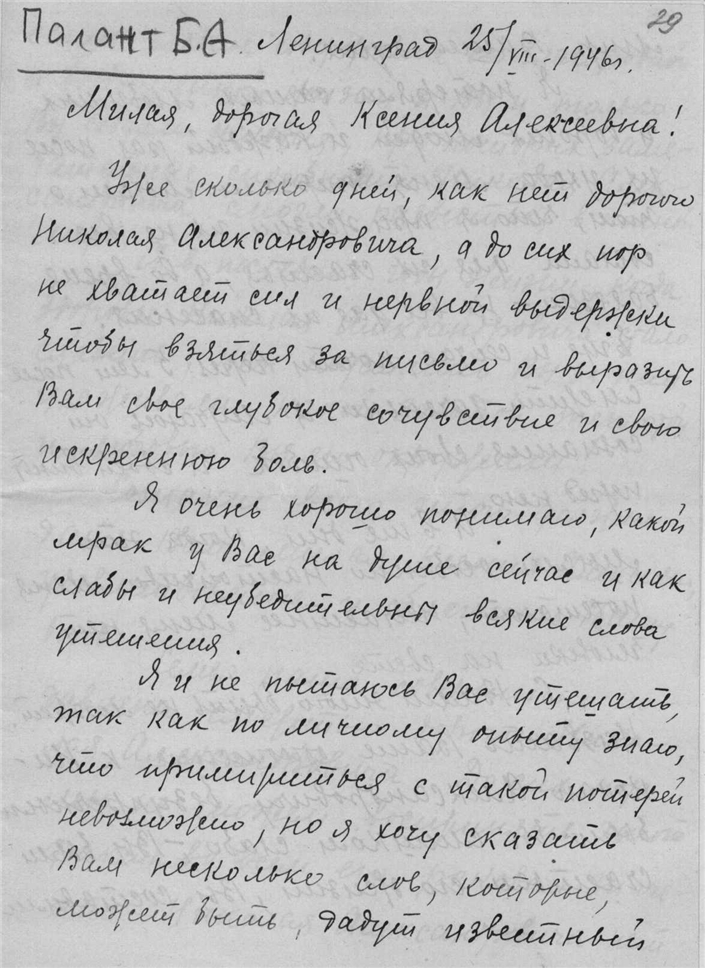 29
Палант Б.А. Ленинград 25/VIII-1946г.
Милая, дорогая Ксения Алексеевна!
Уже сколько дней, как нет дорогого
Николая Александровича, а до сих пор
не хватает сил и нервной выдержки
чтобы взяться за письмо и выразить
Вам свое глубокое сочувствие и свою
искреннюю боль.
Я очень хорошо понимаю, какой
мрак у Вас на душе сейчас и как
слабы и неубедительны всякие слова
утешения.
Я и не пытаюсь Вас утешать,
так как по личному опыту знаю,
что примириться с такой потерей
невозможно, но я хочу сказать
Вам несколько слов, которые,
может быть, дадут известный